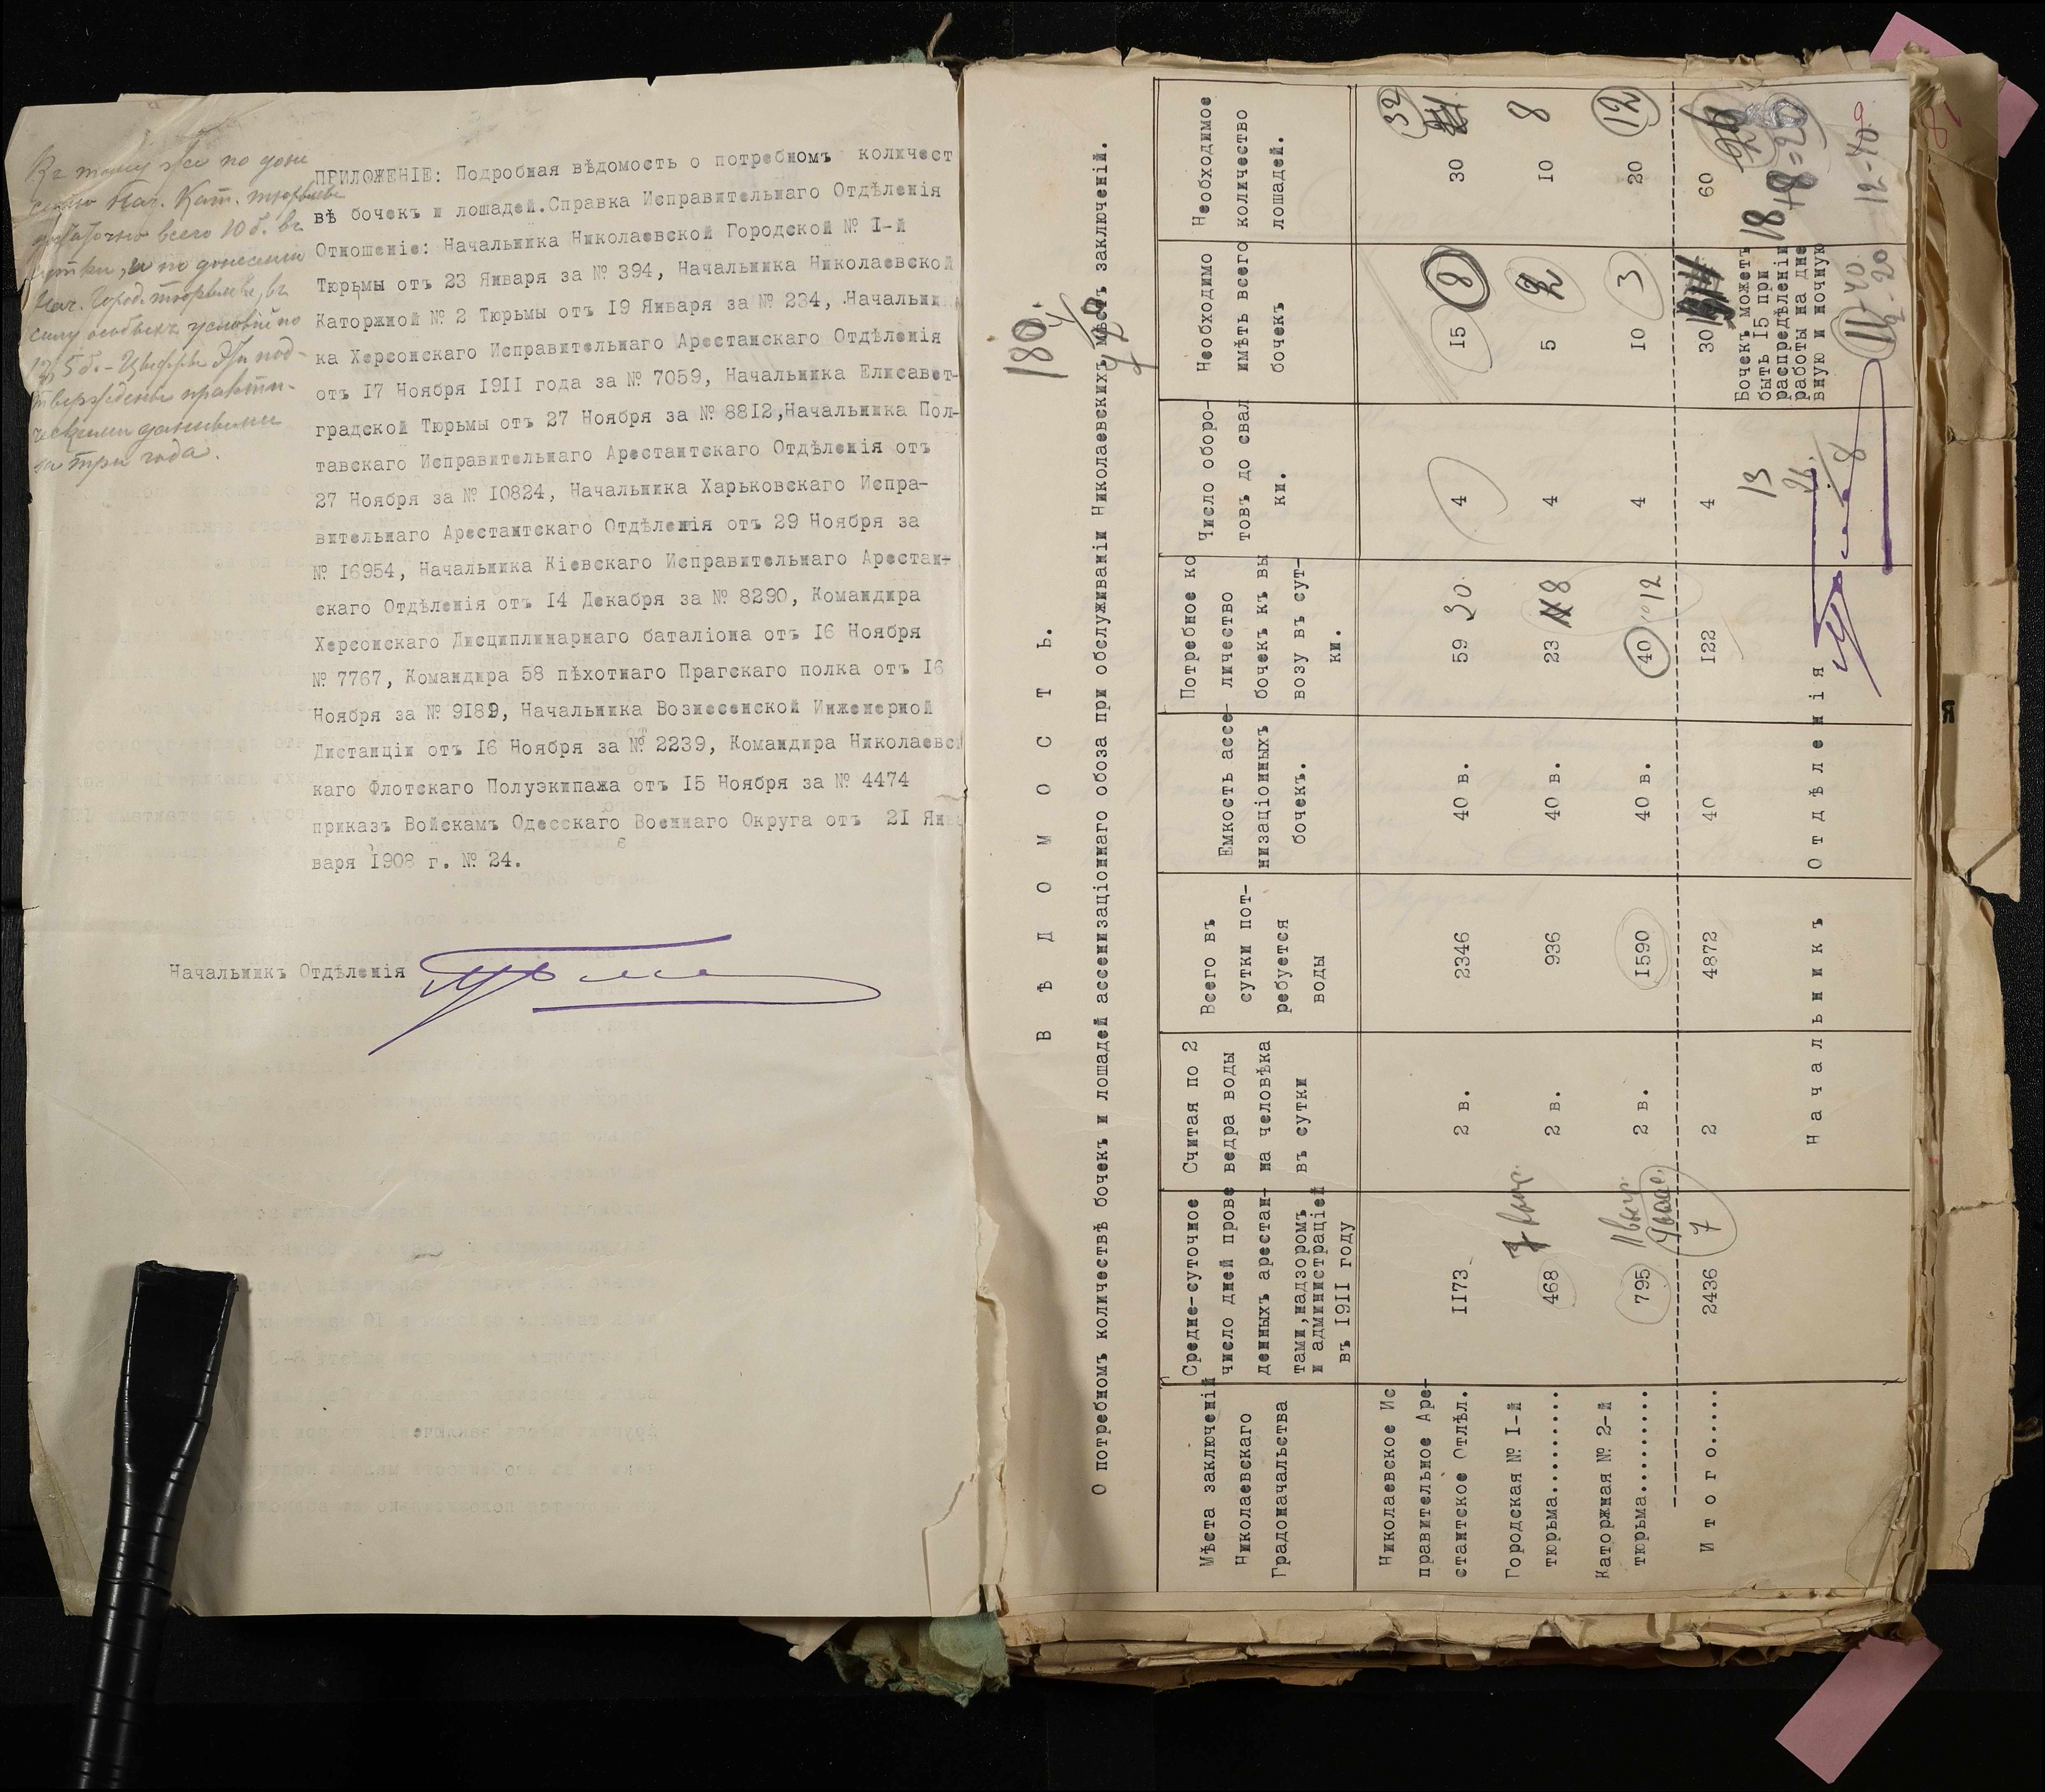 Въ тому же по доне
сенію Нач. Кат. тюрьмы
достаточно всего 10 б. въ
сутки, и по донесенію
Нач. Город. тюрьмы, въ
силу особыхъ условій по
5 б. - Цыфры эти под-
тверждены практи-
ческими данными
за три года.
ПРИЛОЖЕНІЕ: Подробная вѣдомость о потребномъ количест
вѣ бочекъ и лошадей.Справка Исправительнаго Отдѣленія
Отношеніе: Начальника Николаевской Городской № I-й
Тюрьмы отъ 23 Января за № 394, Начальника Николаевской
Каторжной № 2 Тюрьмы отъ 19 Января за № 234, Начальни
ка Херсонскаго Исправительнаго Арестанскаго Отдѣленія
отъ 17 Ноября 1911 года за № 7059, Начальника Елисавет-
градской Тюрьмы отъ 27 Ноября за № 8812,Начальника Пол-
тавскаго Исправительнаго Арестантскаго Отдѣленія отъ
27 Ноября за № 10824, Начальника Харьковскаго Испра-
вительнаго Арестантскаго Отдѣленія отъ 29 Ноября за
№ 16954, Начальника Кіевскаго Исправительнаго Арестан-
скаго Отдѣленія отъ 14 Декабря за № 8290, Командира
Херсонскаго Дисциплинарнаго баталіона отъ 16 Ноября
№ 7767, Командира 58 пѣхотнаго Прагскаго полка отъ 16
Ноября за № 9189, Начальника Вознесенской Инженерной
Дистанціи отъ 16 Ноября за № 2239, Командира Николаевс
каго Флотскаго Полуэкипажа отъ 15 Ноября за № 4474
приказъ Войскамъ Одесскаго Военнаго Округа отъ 21 Янв
варя 1908 г. № 24.
Начальникъ Отдѣленія
180
4
720
В Ѣ Д О М О С Т Ь.
О потребномъ количествѣ бочекъ и лошадей ассенизаціоннаго обоза при обслуживаніи Николаевскихъ мѣстъ заключеній.
Мѣста заключеній
Николаевскаго
Градоначальства
Средне-суточное
число дней прове
денныхъ арестан-
тами,надзоромъ
и администраціей
въ 1911 году
Считая по 2
ведра воды
на человѣка
въ сутки
Всего въ
сутки пот-
ребуется
воды
Емкость ассе-
низаціонныхъ
бочекъ.
Потребное ко
личество
бочекъ къ вы
возу въ сут-
ки.
Число оборо-
товъ до свал
ки.
Необходимо
имѣть всего
бочекъ
Необходимое
количество
лошадей.
Николаевское Ис
правительное Аре-
стантское Отдѣл. 1173 2 в. 2346 40 в. 59 30 4 15 8 30 32
Городская № I-й
тюрьма.......... 468 2 в. 936 40 в. 23 8 4 5 2 10 8
Каторжная № 2-й
тюрьма.......... 795 2 в. 1590 40 в. 40 12 4 10 3 20 12
И т о г о..... 2436 7 2 4872 40 122 4 30 60
Бочекъ можетъ
быть 15 при
распредѣленіи
работы на дне
вную и ночную
18
13
18=20
11-40
2-20
12-40
Н а ч а л ь н и к ъ О т д ѣ л е н і я